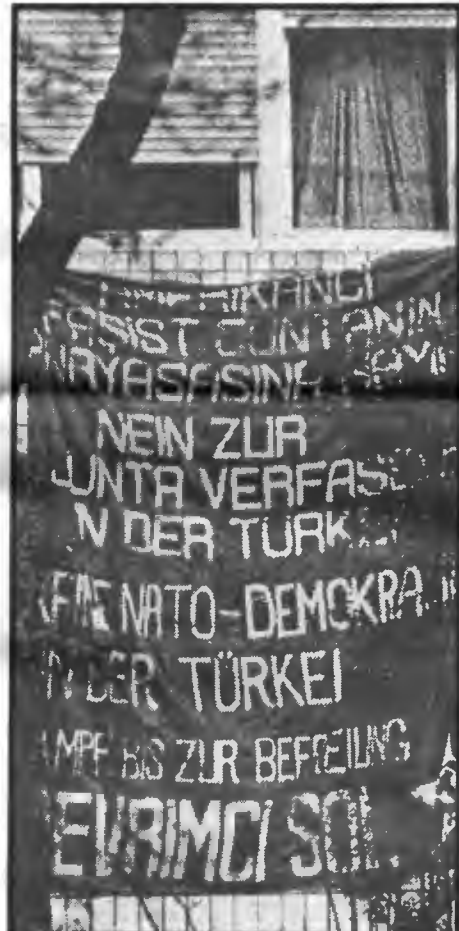 FAŞİST CUNTANIN
ANAYASASINA HAYIR
NEIN ZUR
JUNTA VERFASSUNG
IN DER TÜRKEI
KEINE NATO-DEMOKRATIE
IN DER TÜRKEI
KAMPF BIS ZUR BEFREIUNG
DEVRIMCI SOL